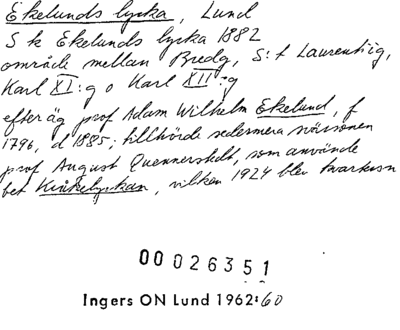 Ekelunds lycka, Lund
S k Ekelunds lycka 1882
område mellan Bredg, S:t Laurentiig,
Karl XI:g o Karl XII:g
efter äg prof Adam Wilhelm Ekelund, f
1796, d 1885; tillhörde sedermera svärsonen
prof August Quennerstedt, som använde
bet Kråkelyckan, vilken 1924 blev kvarlevn
00026351
Ingers ON Lund 1962:60